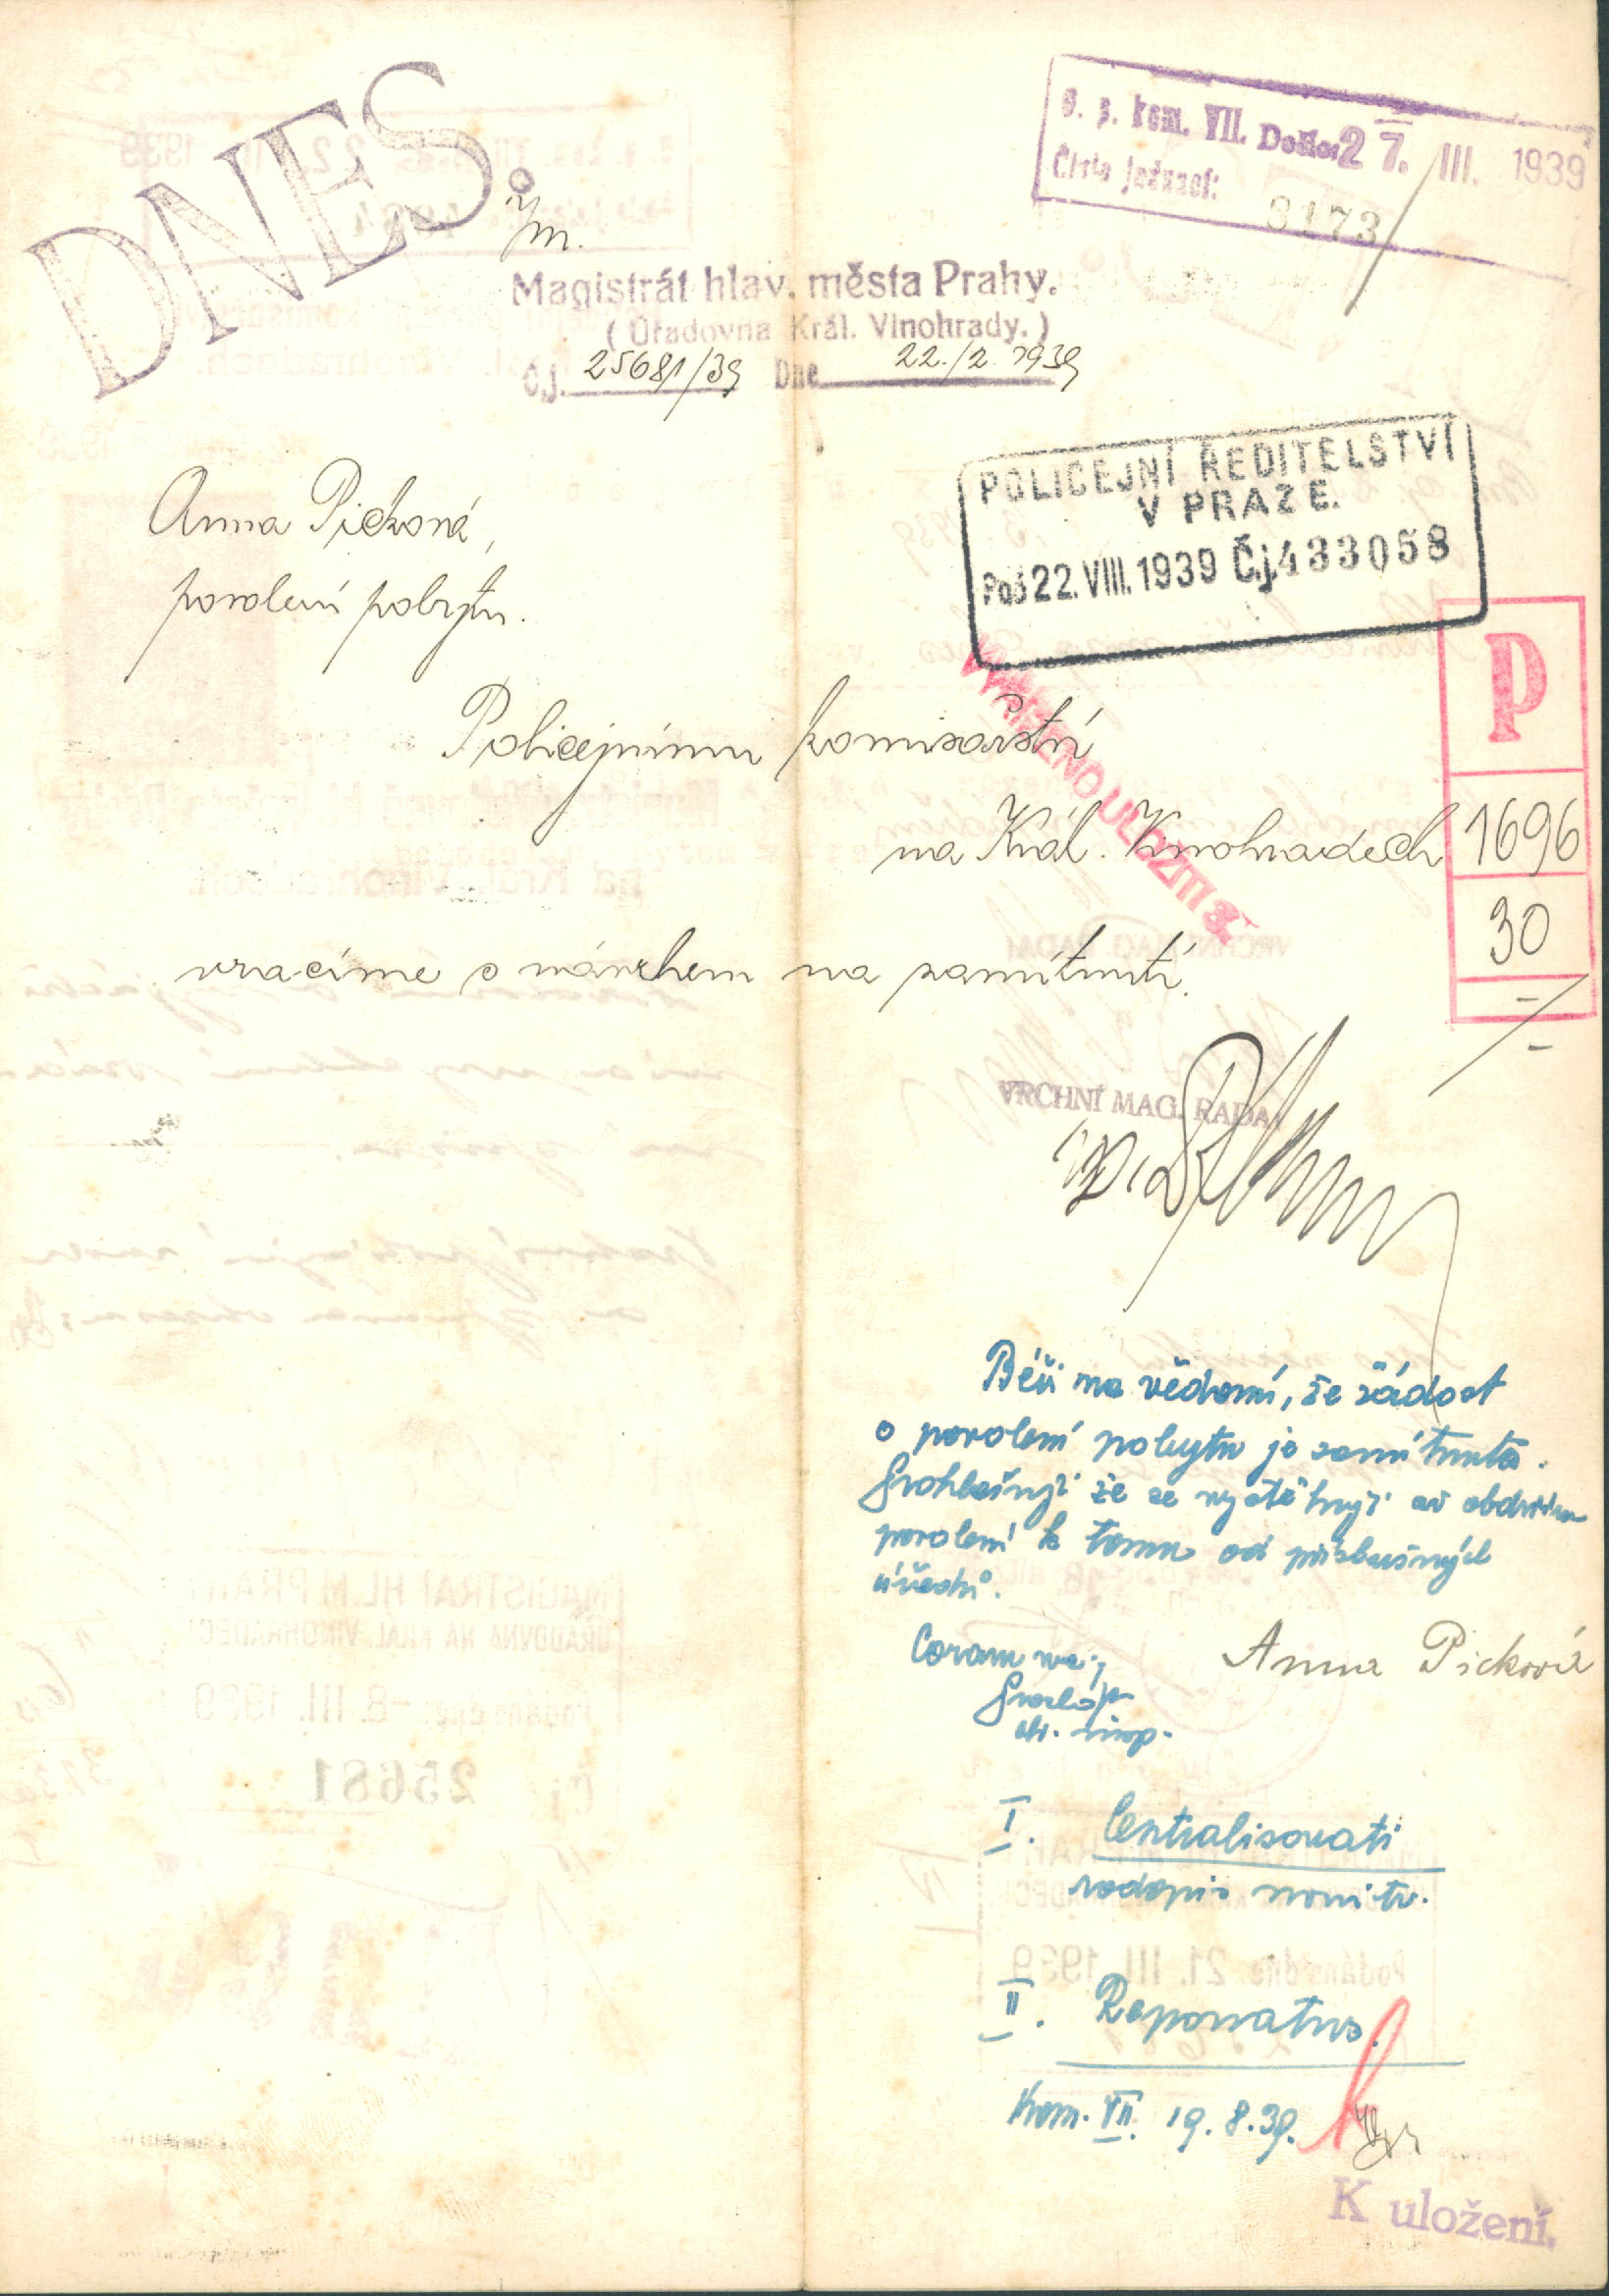 DNES.
Došlo: 27. III. 1939
Číslo jednací:
8173
Magistrát hlav. města Prahy.
(Úřadovna Král. Vinohrady.)
Č.j. 25681/39 Dne 22./2. 1939
POLICEJNÍ ŘEDITELSTVÍ
V PRAZE.
22. VIII. 1939 Č.j. 433058
Anna Picková,
povolení pobytu.
P
1696
30
Policejnímu komisařství
na Král. Vinohradech
VYŘÍZENO ULOŽITI
vracíme s návrhem na zamítnutí.
VRCHNÍ MAG. RADA:
Béři na vědomí, že žádost
o povolení pobytu je zamítnuta.
Prohlašuji že se vystěhuji až obdržím
povolení k tomu od příslušných
úřadů.
Coram me:
Anna Picková
I. Centralisovati
rodopis
II. Reponatur.
Kom. VII. 19. 8. 39.
K uložení.